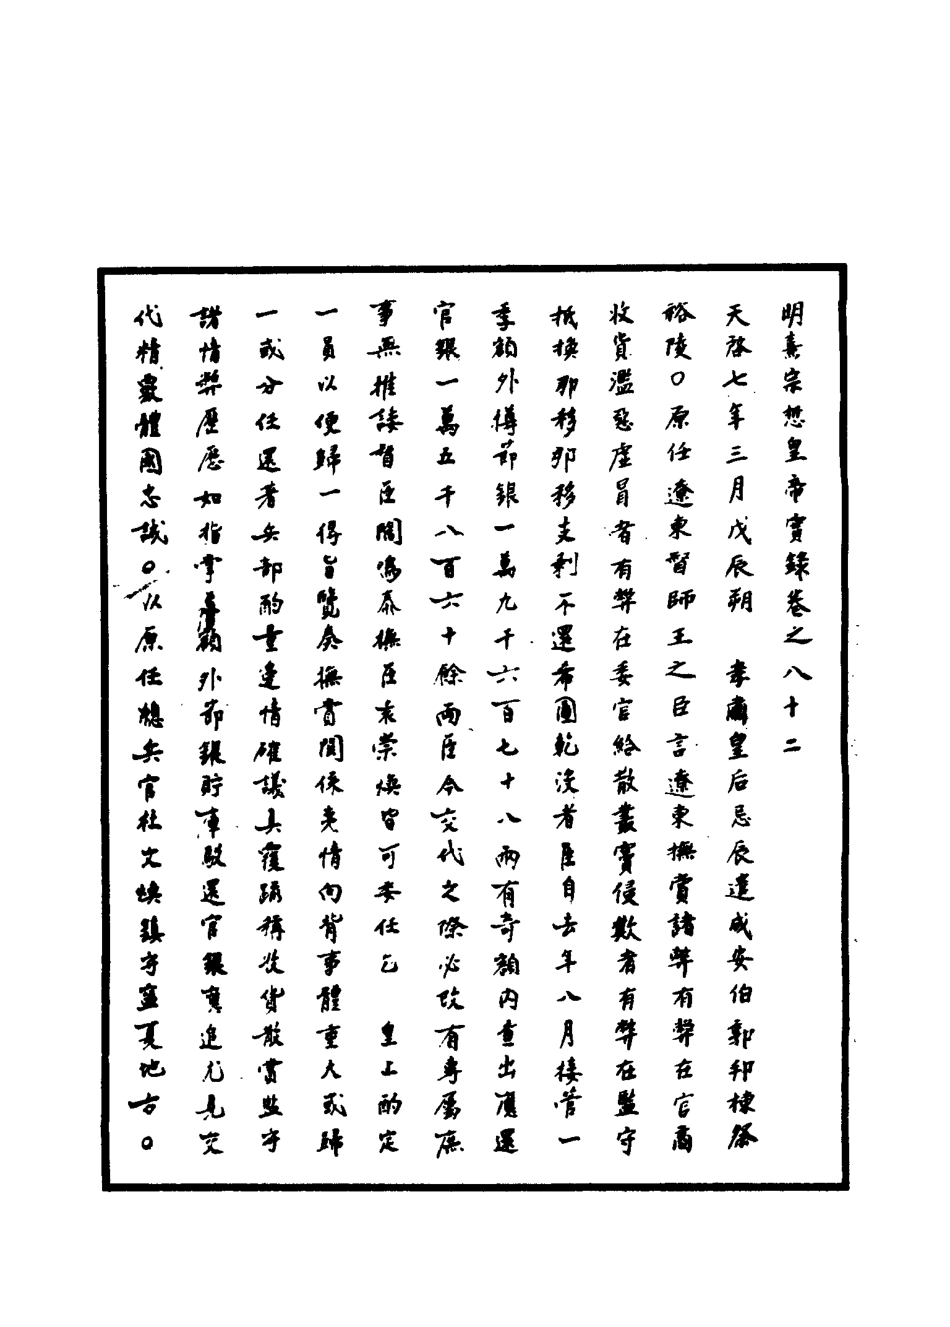 明熹宗悊皇帝實錄卷之八十二
天啓七年三月戊辰朔　孝肅皇后忌辰遣咸安伯郭邦棟祭
裕陵○原任遼東督師王之臣言遼東撫賞諸弊有弊在官商
收貨濫惡虛冒者有弊在委官給散叢實侵欺者有弊在監守
抵換那移那移支剩不還希圖乾沒者臣自去年八月接管一
季額外撙節銀一萬九千六百七十八兩有奇額內查出應還
官銀一萬五千八百六十餘兩臣今交代之際必攺有專屬庶
事無推諉督臣閻鳴泰撫臣袁崇煥皆可委任乞　皇上酌定
一員以便歸一得旨覽奏撫賞関係夷情向背事體重大或歸
一或分任還著兵部酌量邊情確議具覆疏稱收貨散賞監守
諸情弊歷歷如指掌額外節銀貯庫駁還官銀實追尤見交
代精嚴體國忠誠○以原任總兵官杜文煥鎮守寧夏地方○